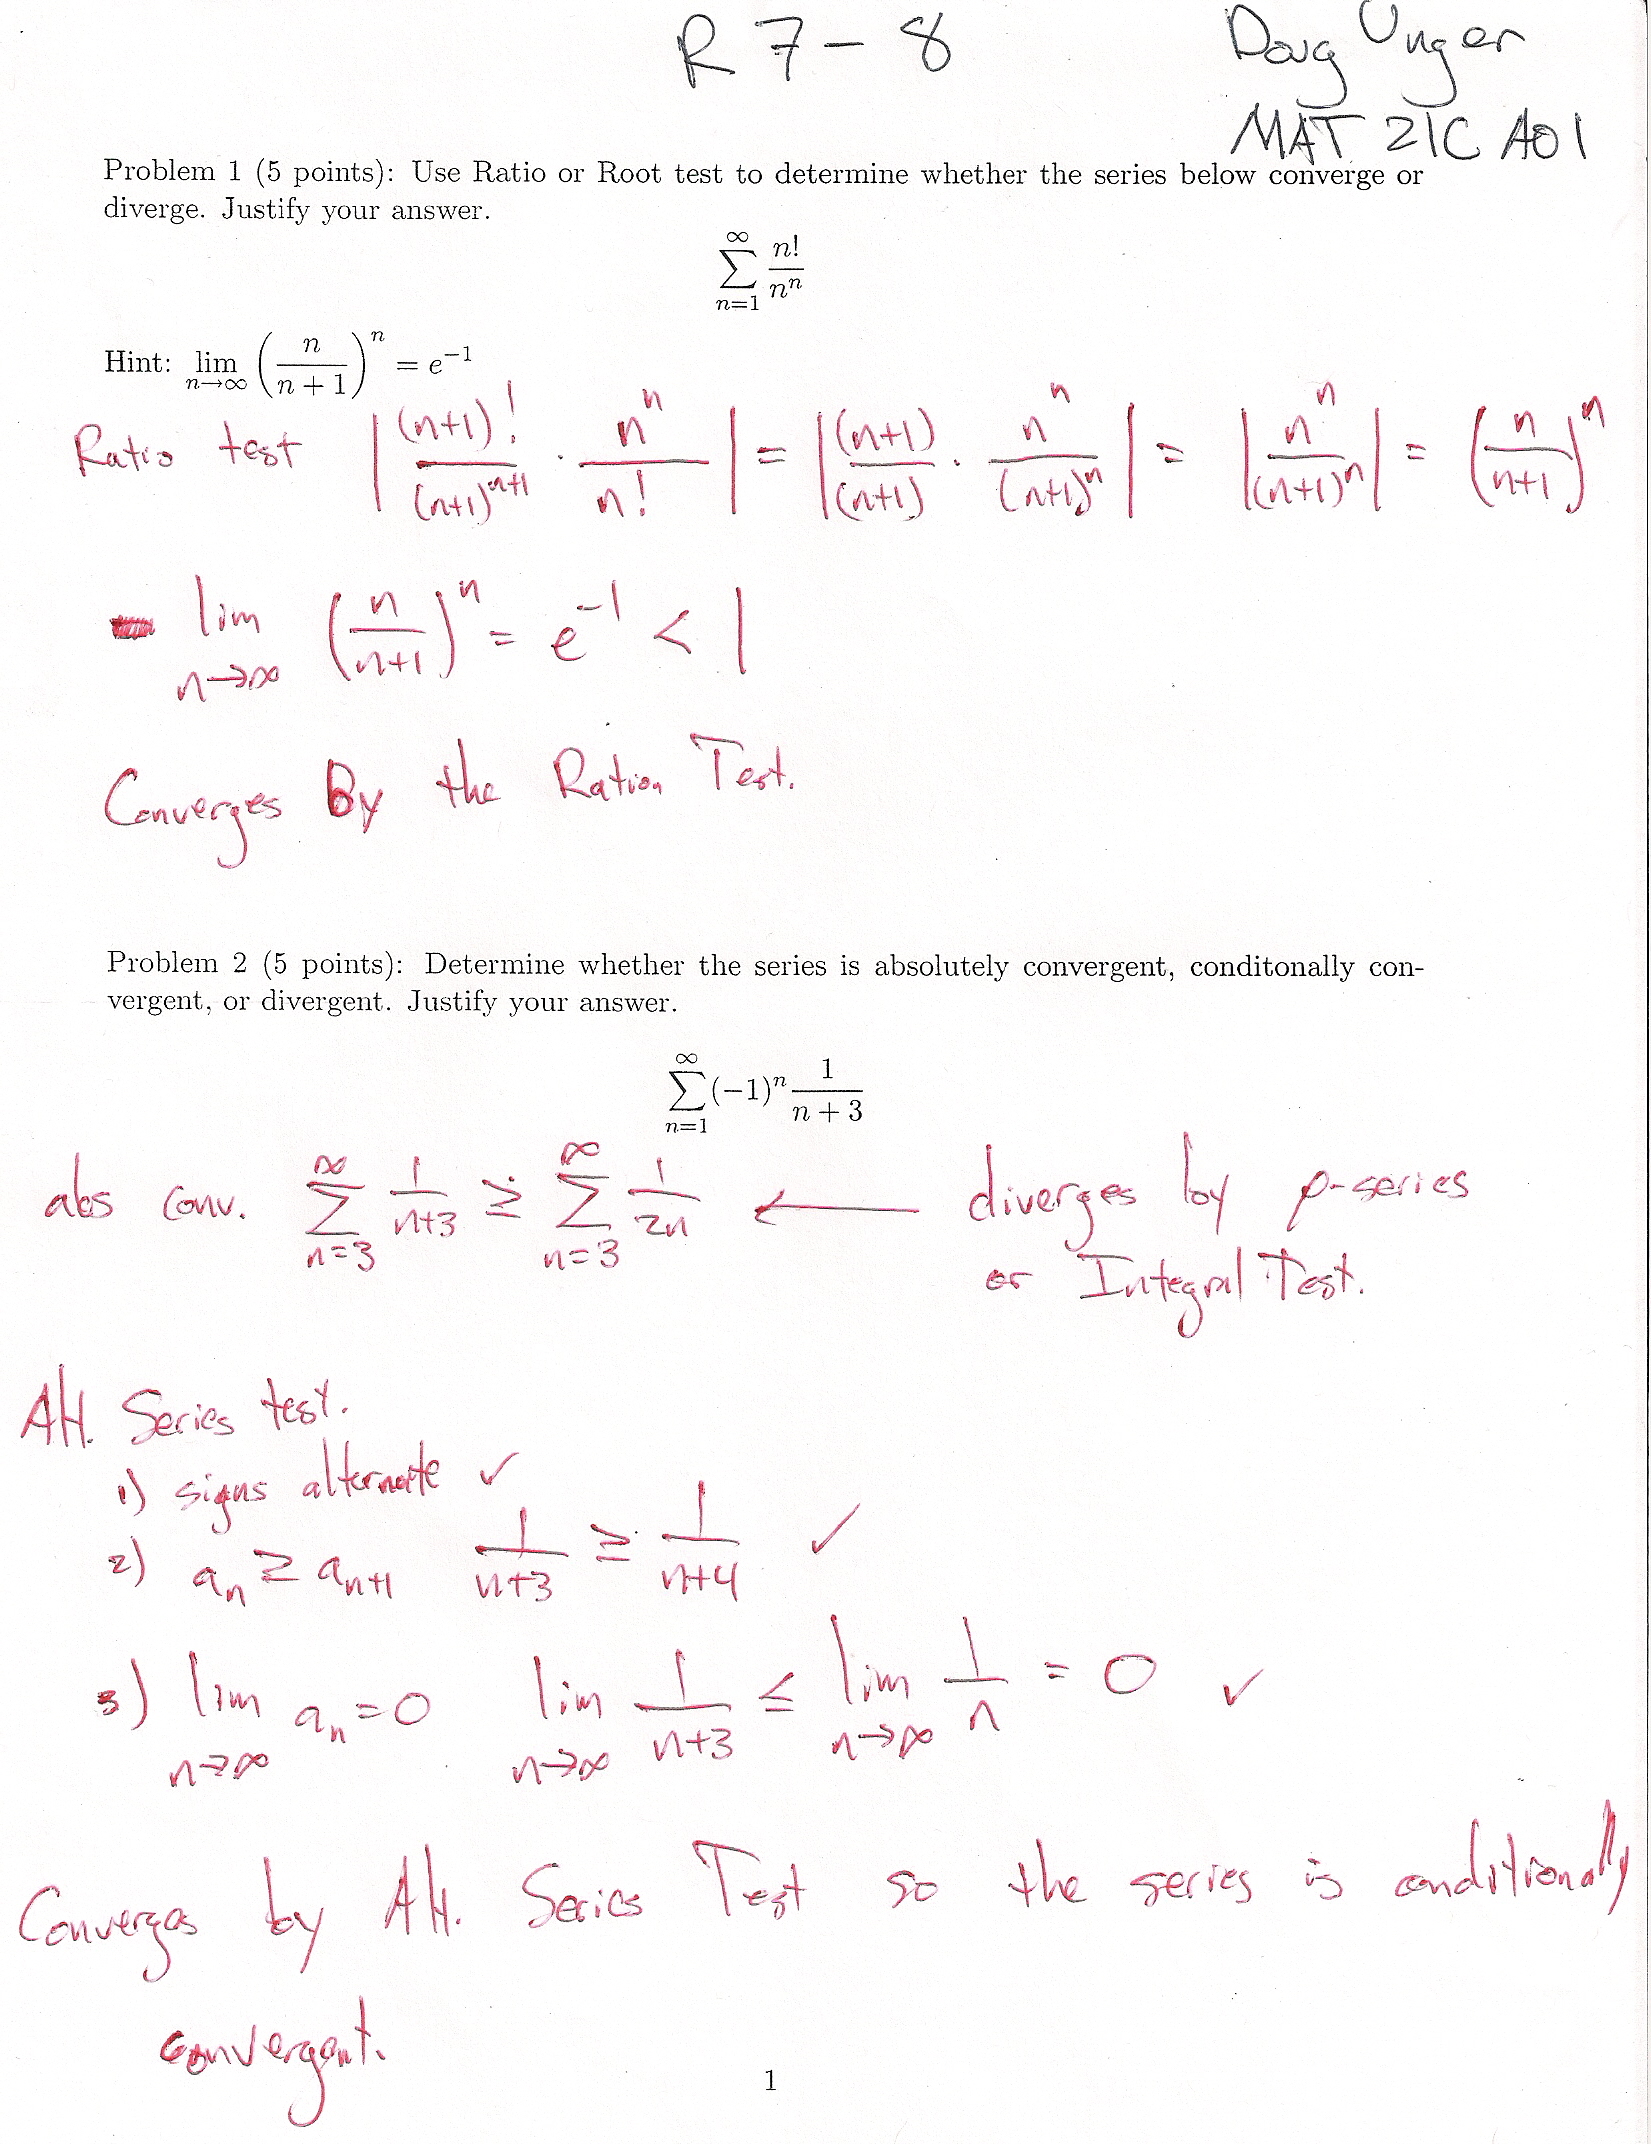 R 7-8
Doug Unger
MAT 21C A01
Problem 1 (5 points): Use Ratio or Root test to determine whether the series below converge or
diverge. Justify your answer.
∑_{n=1}^{∞} n!/n^n
Hint: lim_{n→∞} (n/(n+1))^n = e^{-1}
Ratio test |(n+1)!/(n+1)^{n+1} · n^n/n!| = |(n+1)/(n+1) · n^n/(n+1)^n| = |n^n/(n+1)^n| = (n/(n+1))^n
lim_{n→∞} (n/(n+1))^n = e^{-1} < 1
Converges By the Ration Test.
Problem 2 (5 points): Determine whether the series is absolutely convergent, conditonally con-
vergent, or divergent. Justify your answer.
∑_{n=1}^{∞} (−1)^n 1/(n+3)
abs conv. ∑_{n=3}^{∞} 1/(n+3) ≥ ∑_{n=3}^{∞} 1/2n ← diverges by p-series
or Integral Test.
Alt. Series test.
1) signs alternate ✓
2) a_n ≥ a_{n+1} 1/(n+3) ≥ 1/(n+4) ✓
3) lim_{n→∞} a_n = 0 lim_{n→∞} 1/(n+3) ≤ lim_{n→∞} 1/n = 0 ✓
Converges by Alt. Series Test so the series is conditionally
convergent.
1